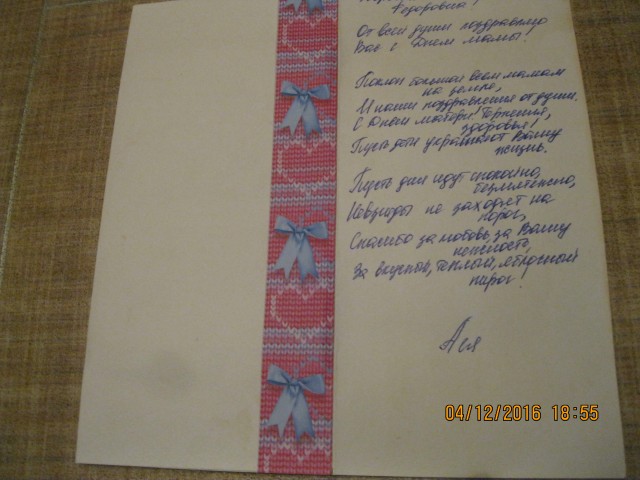 Федоровна!
От всей души поздравляю
Вас с Днем мамы!
Поклон большой всем мамам
на земле,
И наши поздравления от души.
С Днем матери! Терпения,
здоровья!,
Пусть дети украшают Вашу
жизнь.
Пусть дни идут спокойно,
безмятежно,
Невзгоды не заходят на
порог,
Спасибо за любовь, за Вашу
нежность,
За вкусный, теплый, яблочный
пирог.
Ася
04/12/2016 18:55